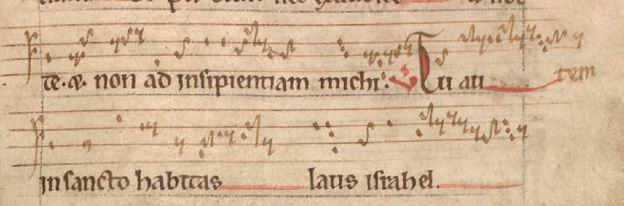 te. &. non ad insipientiam michi. V Tu au tem
in sancto habitas laus israhel.